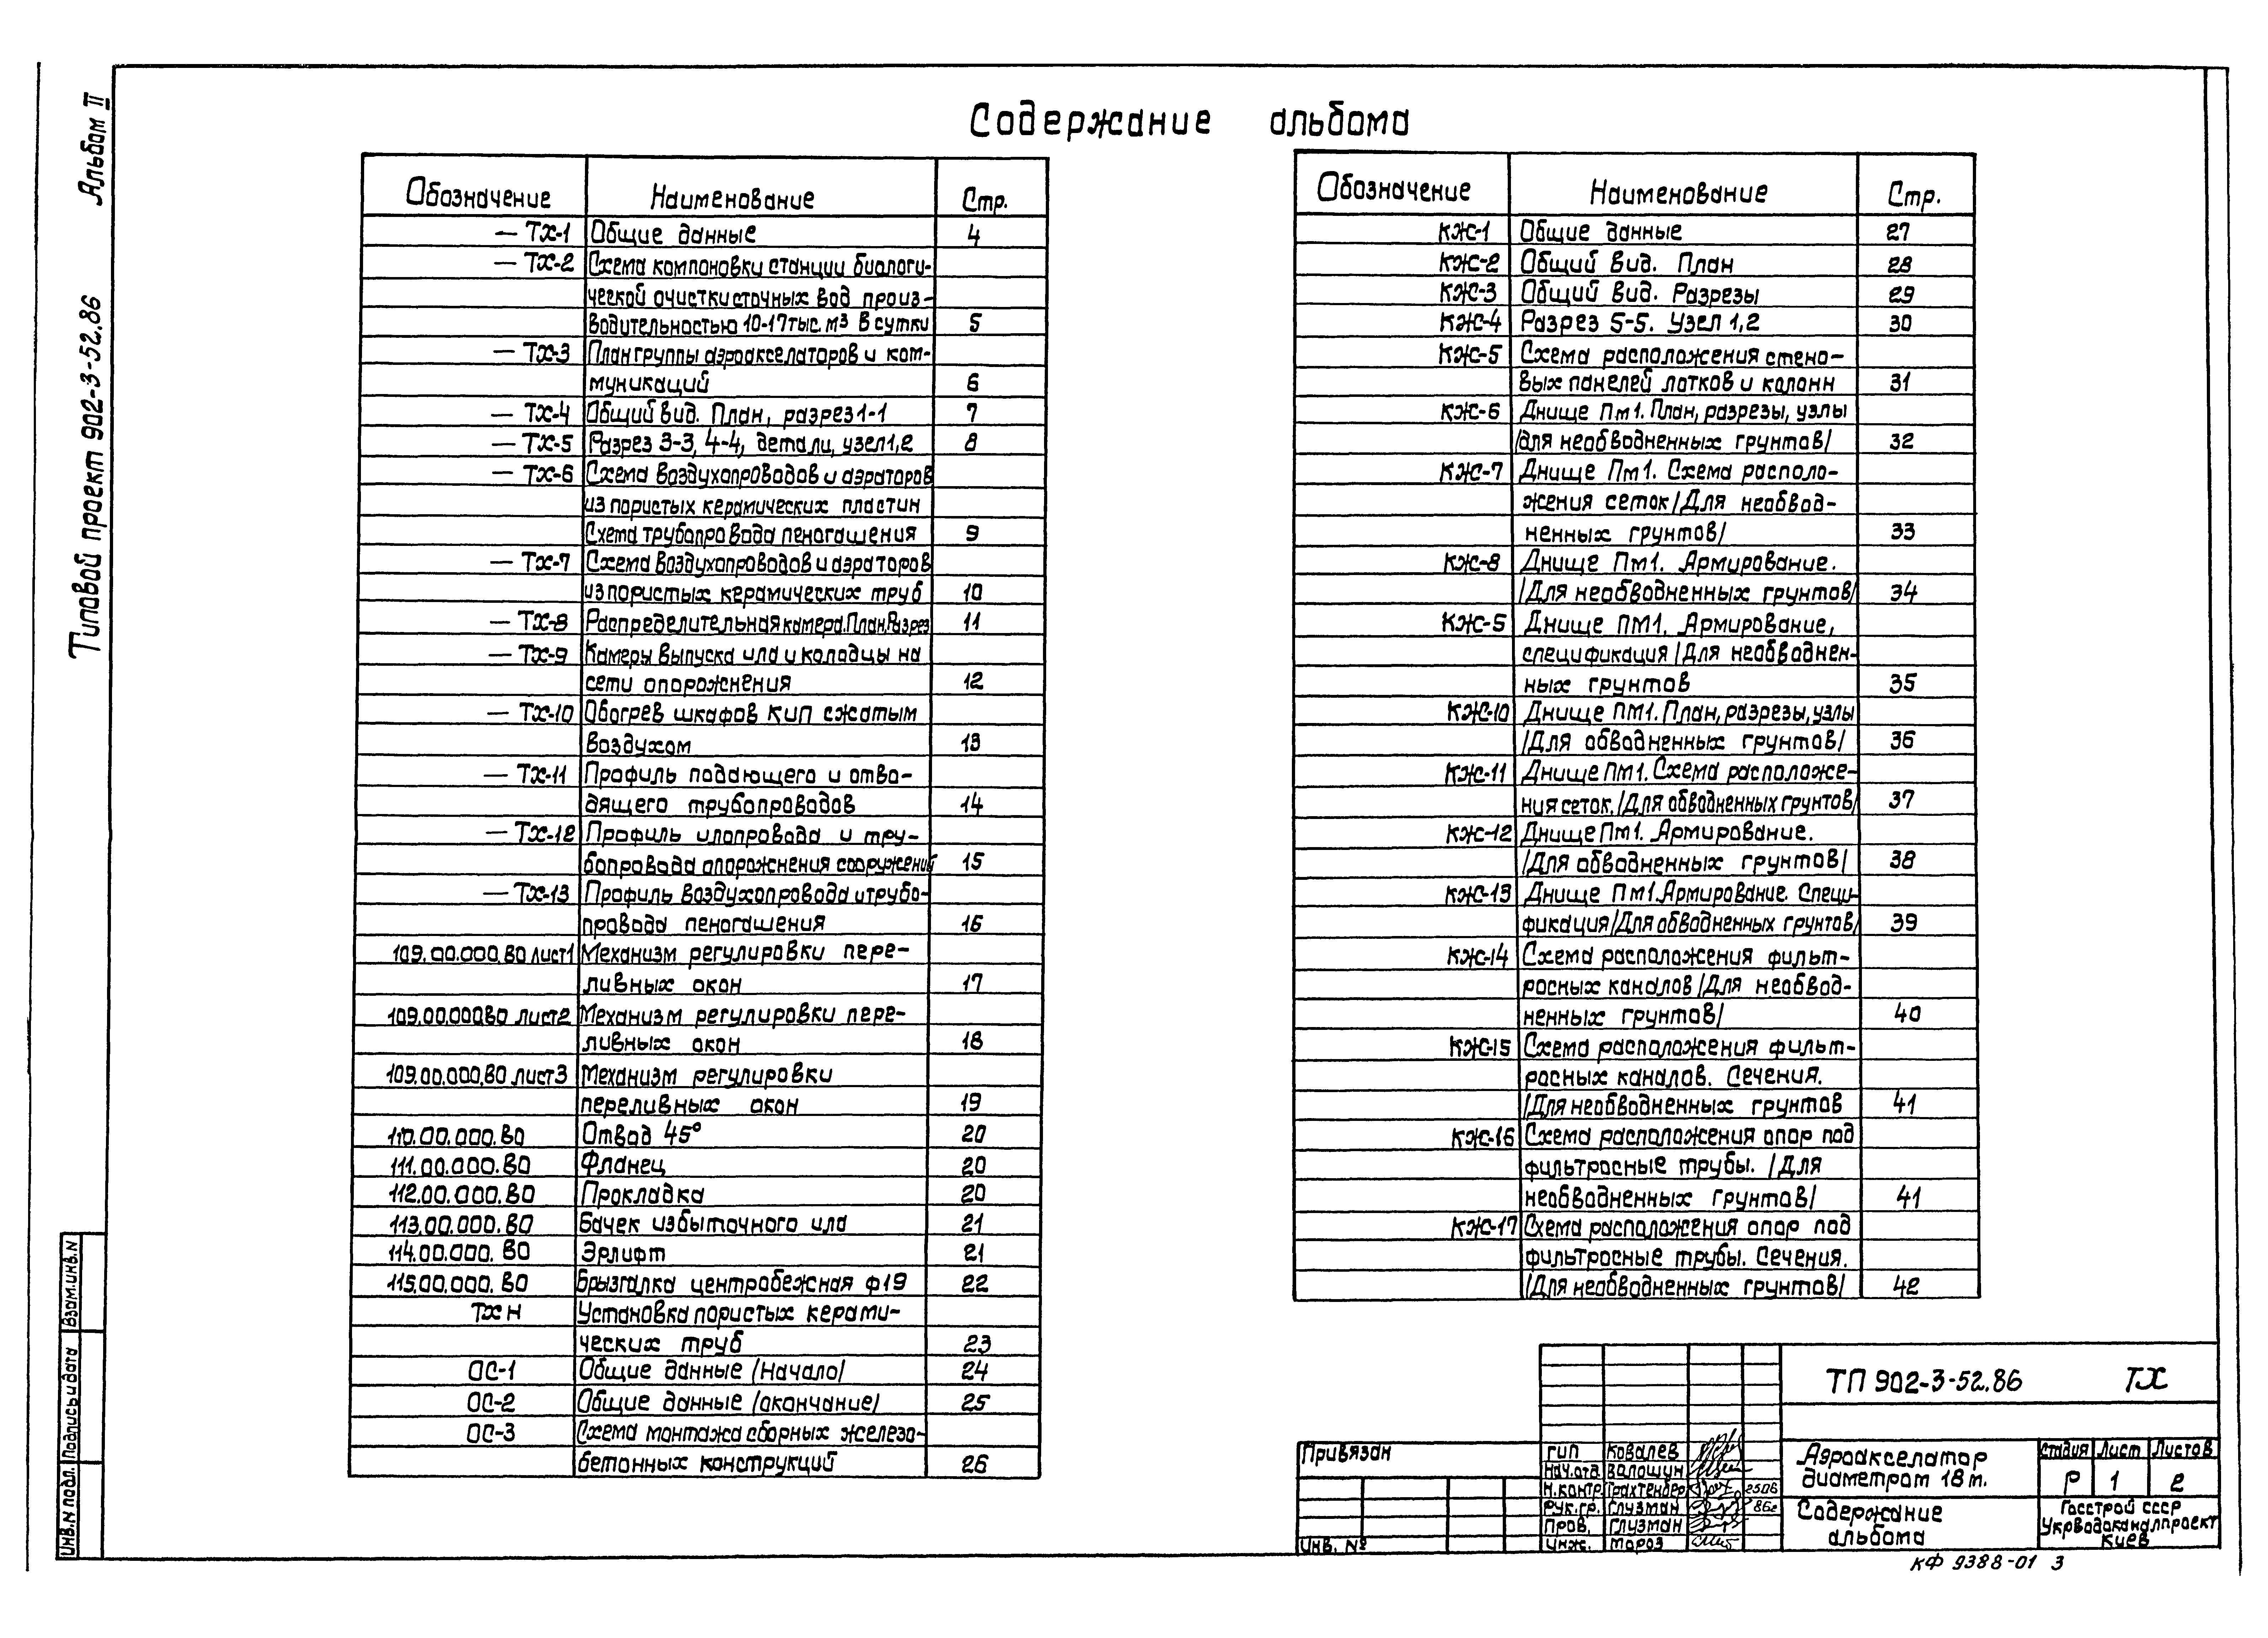 Альбом II
Типовой проект 902-3-52.86
Содержание альбома
Обозначение Наименование Стр.
— ТХ-1 Общие данные 4
— ТХ-2 Схема компоновки станции биологи-
ческой очистки сточных вод произ-
водительностью 10-17 тыс. м3 в сутки 5
— ТХ-3 План группы аэроакселаторов и ком-
муникаций 6
— ТХ-4 Общий вид. План, разрез 1-1 7
— ТХ-5 Разрез 3-3, 4-4, детали, узел 1,2 8
— ТХ-6 Схема воздухопроводов и аэраторов
из пористых керамических пластин
Схема трубопровода пеногашения 9
— ТХ-7 Схема воздухопроводов и аэраторов
из пористых керамических труб 10
— ТХ-8 Распределительная камера. План, Разрез 11
— ТХ-9 Камеры выпуска ила и колодцы на
сети опорожнения 12
— ТХ-10 Обогрев шкафов КИП сжатым
воздухом 13
— ТХ-11 Профиль подающего и отво-
дящего трубопроводов 14
— ТХ-12 Профиль илопровода и тру-
бопровода опорожнения сооружений 15
— ТХ-13 Профиль воздухопровода и трубо-
провода пеногашения 16
109.00.000.ВО лист1 Механизм регулировки пере-
ливных окон 17
109.00.000.ВО лист2 Механизм регулировки пере-
ливных окон 18
109.00.000.ВО лист3 Механизм регулировки
переливных окон 19
110.00.000.ВО Отвод 45° 20
111.00.000.ВО Фланец 20
112.00.000.ВО Прокладка 20
113.00.000.ВО Бачек избыточного ила 21
114.00.000.ВО Эрлифт 21
115.00.000.ВО Брызгалка центробежная ф19 22
ТХ Н Установка пористых керами-
ческих труб 23
ОС-1 Общие данные /Начало/ 24
ОС-2 Общие данные /окончание/ 25
ОС-3 Схема монтажа сборных железо-
бетонных конструкций 26
Обозначение Наименование Стр.
КЖ-1 Общие данные 27
КЖ-2 Общий вид. План 28
КЖ-3 Общий вид. Разрезы 29
КЖ-4 Разрез 5-5. Узел 1,2 30
КЖ-5 Схема расположения стено-
вых панелей лотков и колонн 31
КЖ-6 Днище Пм1. План, разрезы, узлы
/для необводненных грунтов/ 32
КЖ-7 Днище Пм1. Схема располо-
жения сеток /Для необвод-
ненных грунтов/ 33
КЖ-8 Днище Пм1. Армирование.
/Для необводненных грунтов/ 34
КЖ-5 Днище ПМ1. Армирование,
спецификация /Для необводнен-
ных грунтов 35
КЖ-10 Днище ПМ1. План, разрезы, узлы
/Для обводненных грунтов/ 36
КЖ-11 Днище Пм1. Схема расположе-
ния сеток. /Для обводненных грунтов/ 37
КЖ-12 Днище Пм1. Армирование.
/Для обводненных грунтов/ 38
КЖ-13 Днище Пм1. Армирование. Специ-
фикация /Для обводненных грунтов/ 39
КЖ-14 Схема расположения фильт-
росных каналов /Для необвод-
ненных грунтов/ 40
КЖ-15 Схема расположения фильт-
росных каналов. Сечения.
/Для необводненных грунтов 41
КЖ-16 Схема расположения опор под
фильтросные трубы. /Для
необводненных грунтов/ 41
КЖ-17 Схема расположения опор под
фильтросные трубы. Сечения.
/Для необводненных грунтов/ 42
Взам.инв.N
Подпись и дата
Инв.N подл.
Привязан
Инв. №
ГИП Ковалев
Нач.отд. Волошун
Н.контр. Трахтенберг 2506
Рук.гр. Глузман 86г
Пров. Глузман
Инж. Мороз
ТП 902-3-52.86 ТХ
Аэроакселатор
диаметром 18 м.
Стадия Лист Листов
Р 1 2
Содержание
альбома
Госстрой СССР
Укрводоканалпроект
Киев
КФ 9388-01 3